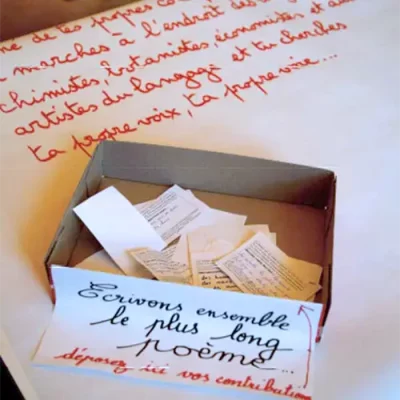 de tes propres
marches à l'endroit des
chimistes, botanistes, économistes et
artistes du langage et tu cherches
ta propre voix, ta propre
Ecrivons ensemble
le plus long
poème...
déposez ici vos contributions